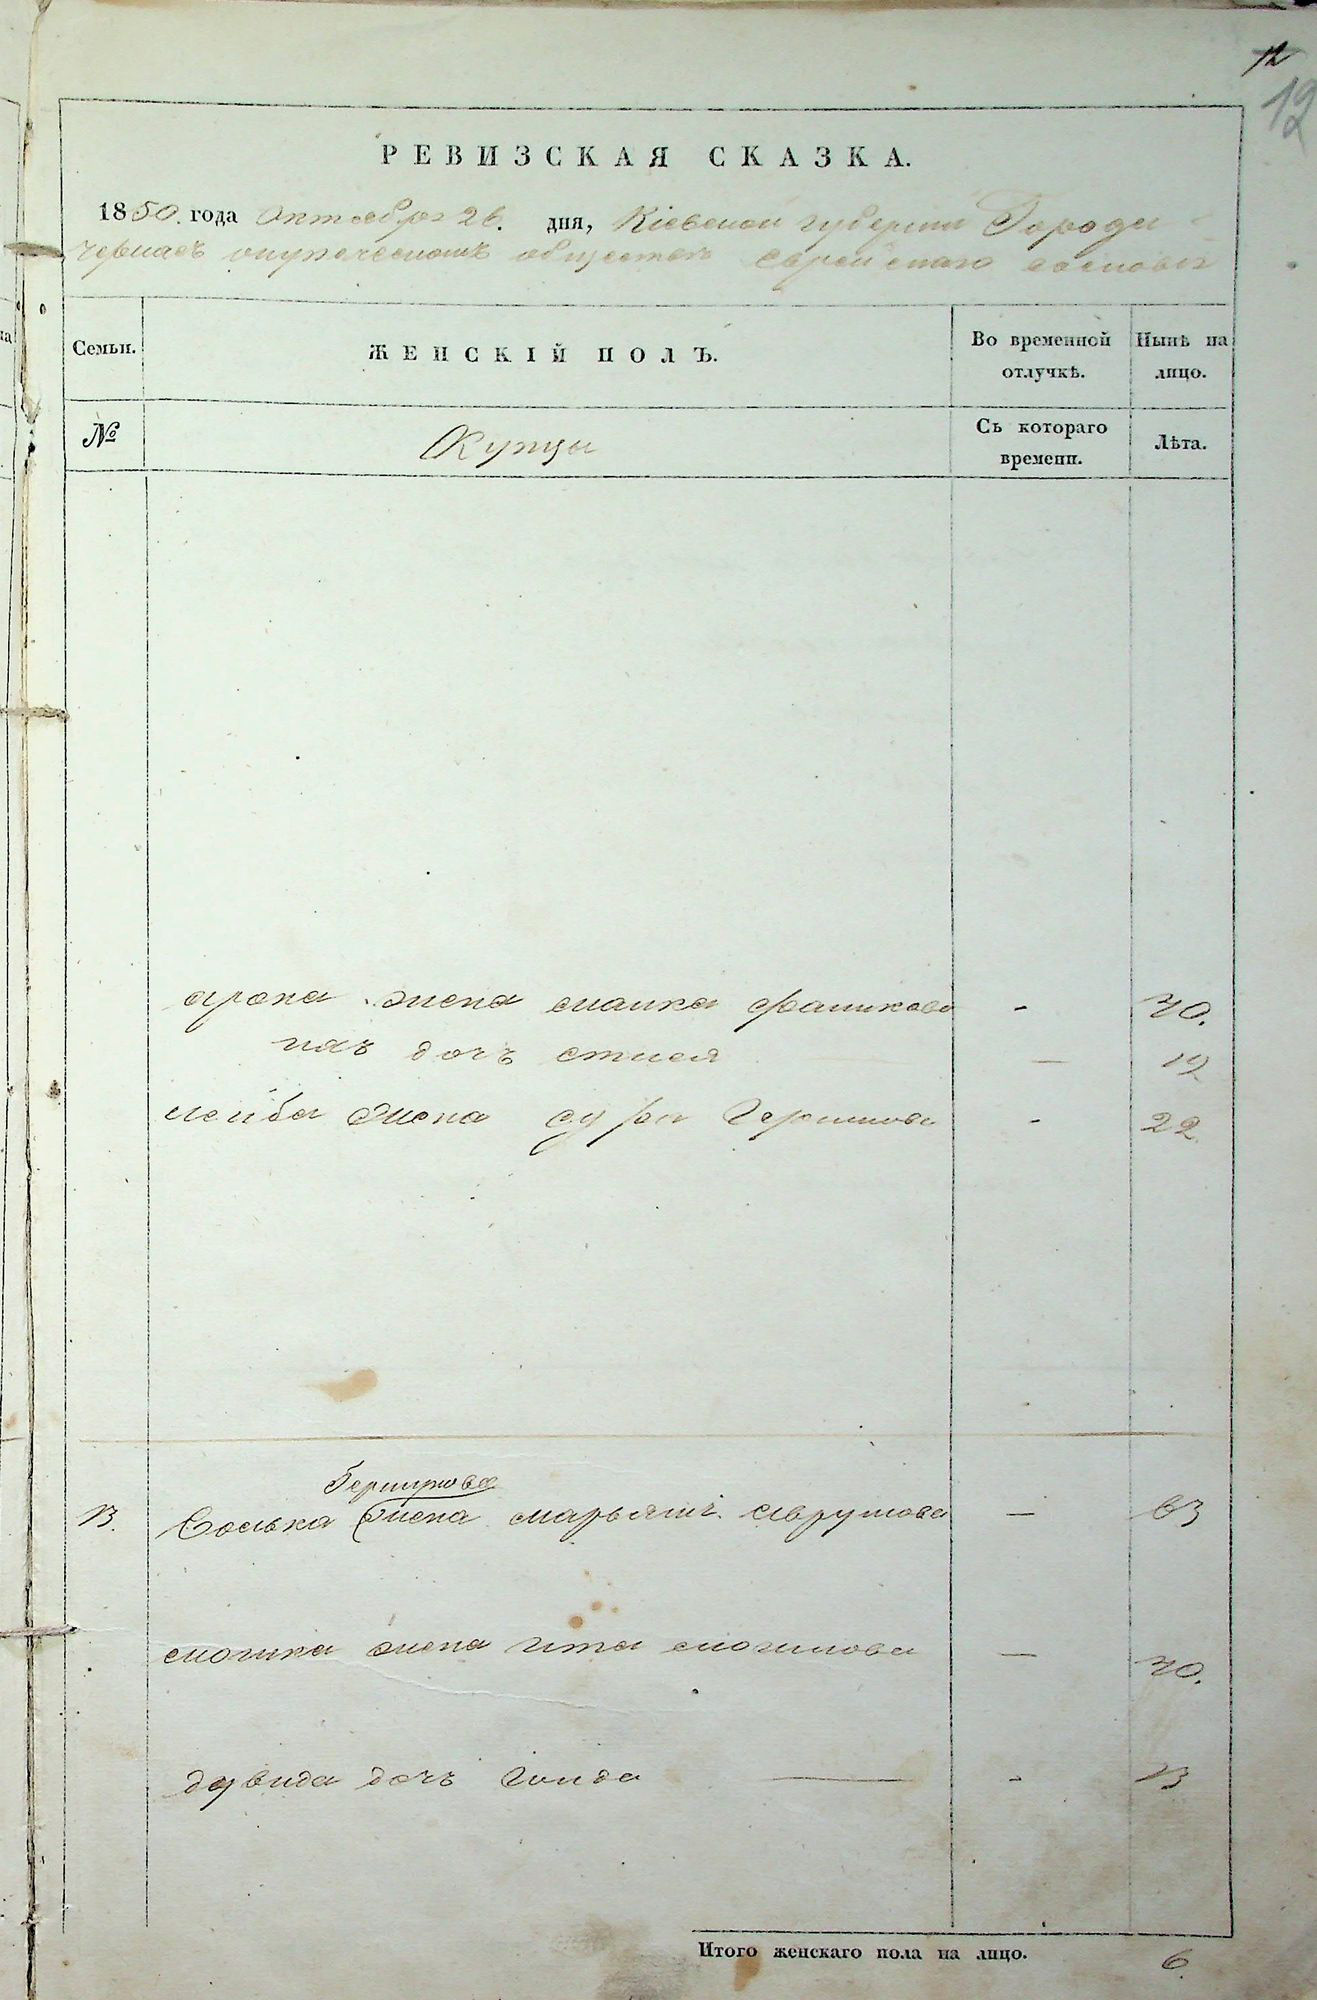 12
12
РЕВИЗСКАЯ СКАЗКА.
1850. года Октября 26. дня, Кіевской губерніи Городи
обществе еврейскаго
Семьи.
ЖЕНСКІЙ ПОЛЪ.
Во временной отлучкѣ.
Нынѣ на лицо.
№
Купцы
Съ котораго времени.
Лѣта.
арона жена малка - 40.
ихъ дочь — 19
лейба жена сура Гершкова - 22
Беркирова
13. жена марьям — 63
мошка жена ита мошкова — 40.
давида дочь голда — - 13
Итого женскаго пола на лицо. 6.